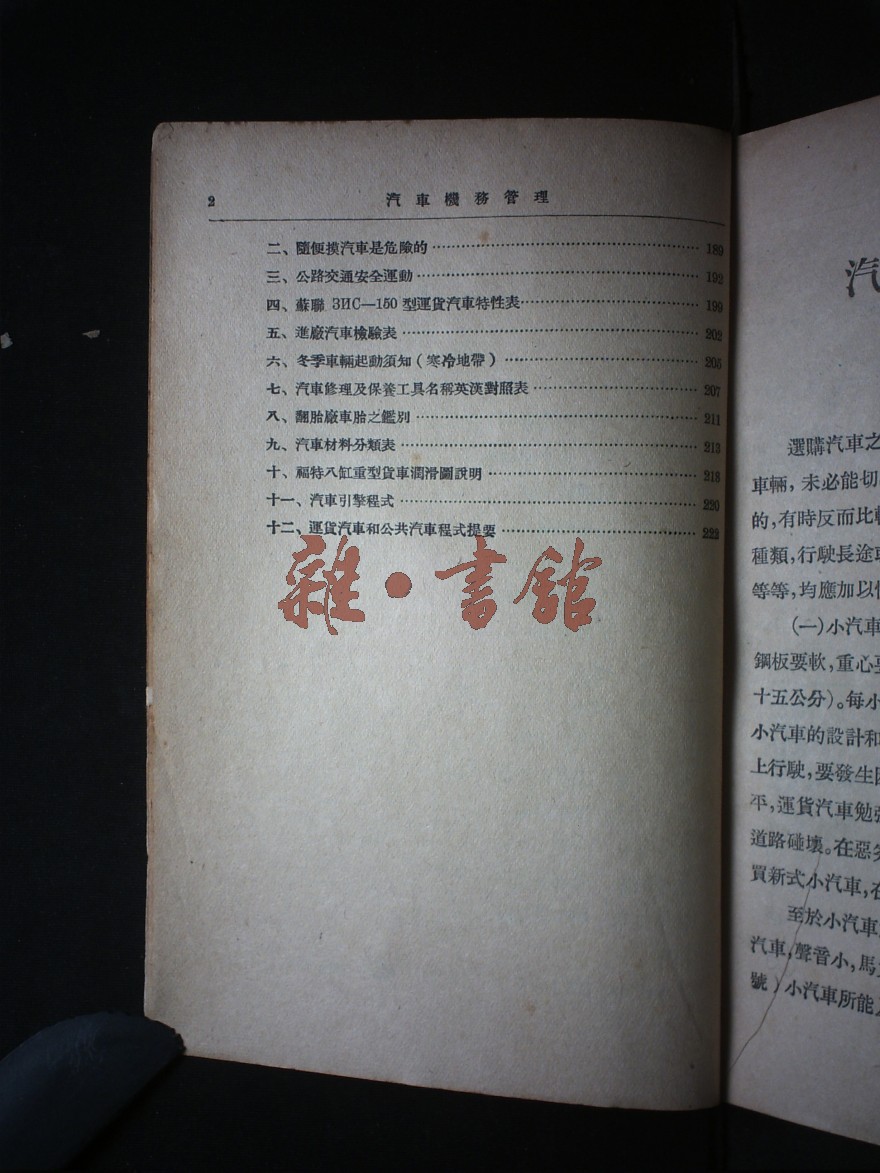 2 汽車機務管理
二、隨便摸汽車是危險的 189
三、公路交通安全運動 192
四、蘇聯 ЗИС—150 型運貨汽車特性表 199
五、進廠汽車檢驗表 202
六、冬季車輛起動須知(寒冷地帶) 205
七、汽車修理及保養工具名稱英漢對照表 207
八、翻胎廠車胎之鑑別 211
九、汽車材料分類表 213
十、福特八缸重型貨車潤滑圖說明 218
十一、汽車引擎程式 220
十二、運貨汽車和公共汽車程式提要 222
雜·書館
汽
選購汽車之
車輛,未必能切
的,有時反而比較
種類,行駛長途
等等,均應加以
(一)小汽車
鋼板要軟,重心
十五公分)。每小
小汽車的設計和
上行駛,要發生
平,運貨汽車勉
道路碰壞。在惡劣
買新式小汽車,在
至於小汽車
汽車,聲音小,馬
號)小汽車所能